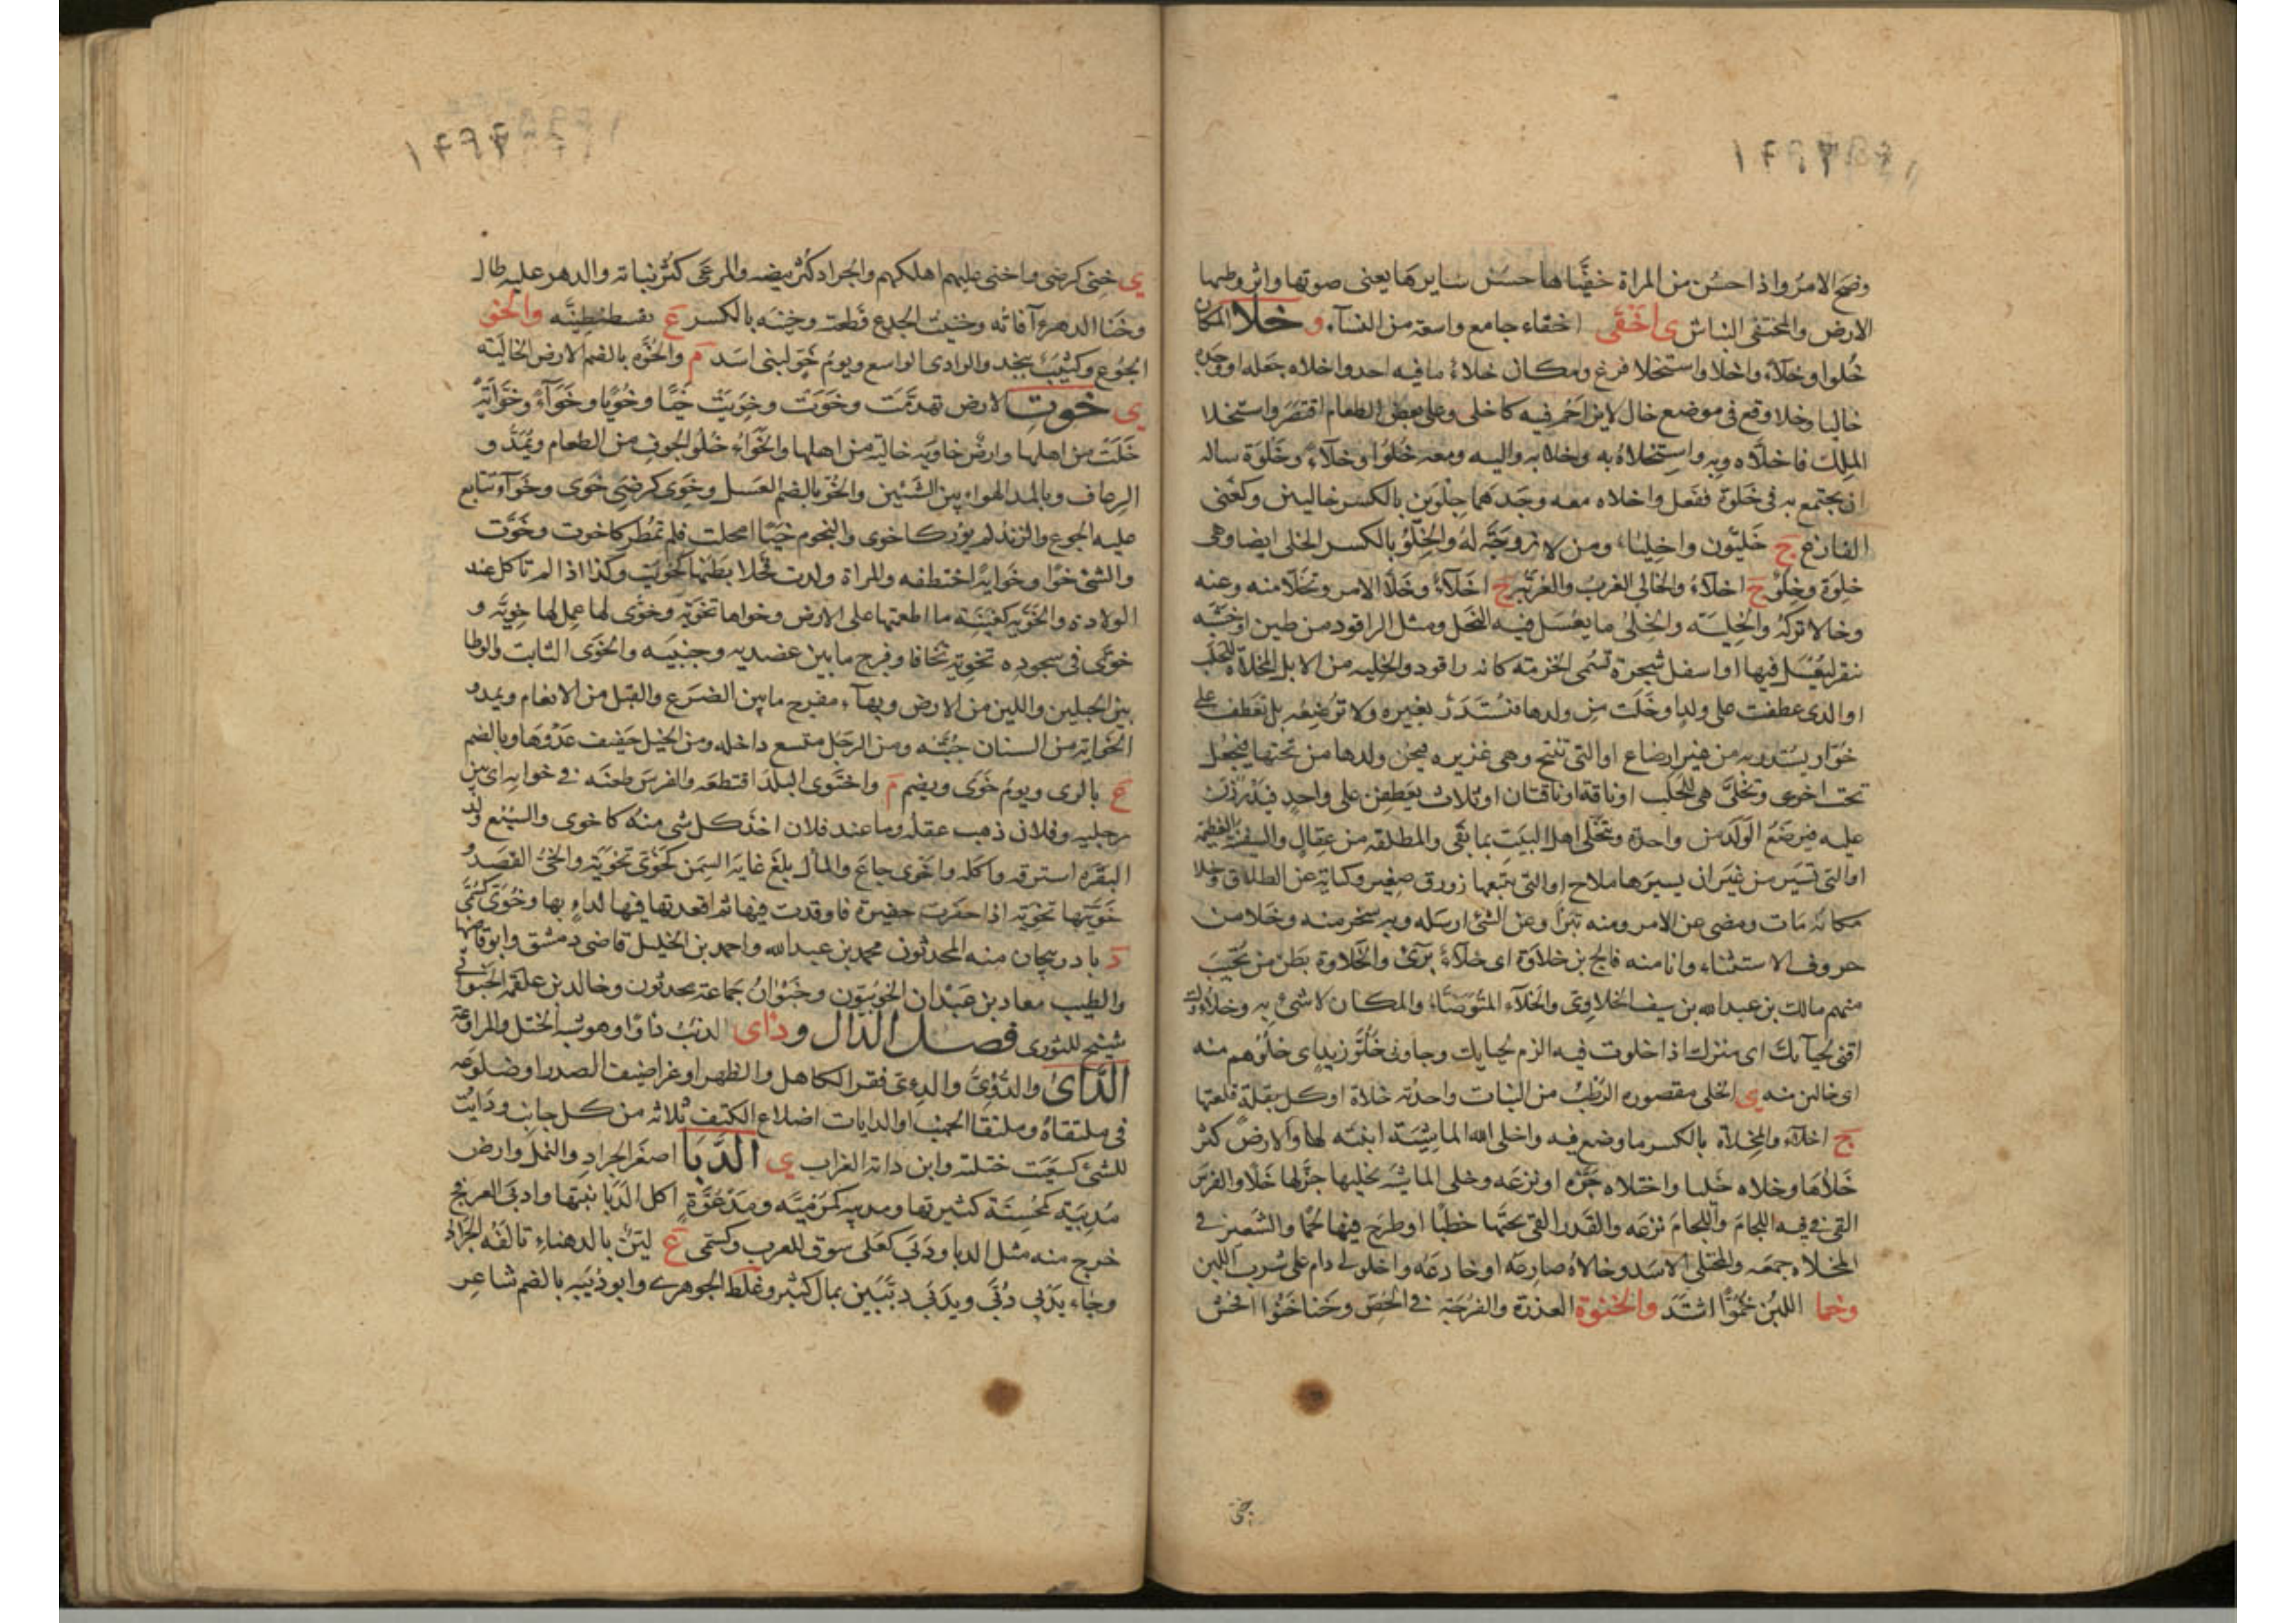 وضح الامر واذا حسن من المراة خفيّاها حسن سايرها يعنى صوتها واثر وطئها
الارض والمختفى النباش ى اخقى اخقاء جامع واسعة من النسآء و خلا المكان
خلوا وخلآء واخلا واستخلا فرغ ومكان خلاء ما فيه احد واخلاه جعله او وجده
خاليا وخلا وقع فى موضع خال لايزاحم فيه كاخلى وعلى بعض الطعام اقتصر واستخلا
الملك فاخلاه وبه واستخلاه به وخلا به واليه ومعه خلوا وخلآء وخلوة ساله
ان يجتمع به فى خلوة ففعل واخلاه معه وجدهما خلوين بالكسر خاليين وكغنى
الفارغ ج خليون واخليا، ومن لا زوجة له والخلو بالكسر الخلى ايضا وهى
خلوة وخلو ج اخلآء والخالي العزب والعزبة ج اخلآء وخلا الامر وتخلا منه وعنه
وخالا تركه والخلية والخلى ما يعسل فيه النحل ومثل الراقود من طين او خشبة
تنقر ليعسل فيها او اسفل شجرة تسمى الخزمة كانه راقود والخلية من الابل المخلاة للحلب
او الذى عطفت على ولد او خلت من ولدها فتستدر بغيره ولا ترضعه بل تعطف على
حوار يستدر به من غير ارضاع او التى تنتج وهى غزيره فيجر ولدها من تحتها فيجعل
تحت اخرى وتخلى هى للحلب او ناقة او ناقتان او ثلاث يعطفن على واحد فيدررن
عليه فيرضع الولد من واحدة وتخلى اهل البيت بما بقى والمطلقة من عقال والسفينة العظيمة
او التى تسير من غير ان يسيرها ملاح او التى يتبعها زورق صغير وكناية عن الطلاق وخلا
مكانه مات ومضى عن الامر ومنه تبرا وعن الشئ ارسله وبه سخر منه وخلا من
حروف الاستثناء وانا منه فالج بن خلاوة اى خلآء برئ والخلاوة بطن من تجيب
منهم مالك بن عبدالله بن سيف الخلاوى والخلآء المتوضا، والمكان لاشئ به وخلاؤك
اقنى لحيآئك اى منزلك اذا خلوت فيه الزم لحيايك وجاونى خلو زيد اى خلوهم منه
اى خالين منه ى الخلى مقصوره الرطب من النبات واحدته خلاة او كل بقلة قلعتها
ج اخلآء والمخلاة بالكسر ما وضع فيه واخلى الله الماشية انبته لها والارض كثر
خلاها وخلاه خليا واختلاه جزه او نزعه وخلى الماشية يخليها جز لها خلا والفرس
القى فى فيه اللجام واللجام نزعه والقدر القى تحتها حطبا او طرح فيها لحما والشعير فى
المخلاه جمعه والمختلى الاسد وخالاه صارعه او خادعه واخلولى دام على شرب اللبن
وخما اللبن خموّا اشتد والخنوة العذرة والفرجة فى الخص وخنا خنوا افحش
خنى
ى خنى كرضى واخنى عليهم اهلكهم والجراد كثر بيضه والمرعى كثر نباته والدهر عليه طال
وخنا الدهر آفاته وخنيت الجدع قطعته وخنيه بالكسر ع بقسطنطينية والخو
الجوع وكثيب بنجد والوادى الواسع ويوم خوّ لبنى اسد م والخوه بالضم الارض الخالية
ى خوت الارض تهدمت وخوت وخويت خيا وخويا وخوآء وخواية
خلت من اهلها وارض خاوية خالية من اهلها والخواء خلو الجوف من الطعام ويمد و
الرعاف وبالمد الهواء بين الشئين والخو بالضم العسل وخوى كرضى خوى وخوآ تتابع
عليه الجوع والزند لم يور كاخوى والنجوم خيا امحلت فلم تمطر كاخوت وخوت
والشئ خوا وخواية اختطفه والمراة ولدت فخلا بطنها كخويت وكذا اذا لم تاكل عند
الولادة والخوية كغنية ما اطعمتها على الارض وخواها تخوية وخوى لها عمل لها خوية و
خوى فى سجوده تخوية تجافا وفرج ما بين عضديه وجنبيه والخوى الثابت والوطا
بين الجبلين واللين من الارض وبهآء مفرج ما بين الضرع والقبل من الانعام ويمد و
الخواية من السنان جبته ومن الرحل متسع داخله ومن الخيل حفيف عدوها وبالضم
ع بالرى ويوم خوى ويضم م واختوى البلد اقتطعه والفرس طعنه فى خوايه اى بين
رجليه وفلان ذهب عقله وما عند فلان اخذ كل شئ منه كاخوى والسبع ولد
البقره استرقه واكله واخوى جاع والمال بلغ غاية السمن كخوى تخوية والخى القصد و
خويتها تخوية اذا حفرت حفيرة فاوقدت فيها ثم اقعدتها فيها لداء بها وخوى كسمى
د باذربيجان منه المحدثون محمد بن عبدالله واحمد بن الخليل قاضى دمشق وابو قاضيها
والطيب معاد بن عبدان الخويون وخيوان جماعة محدثون وخالد بن علقمة الخيوانى
شيخ للثورى فصل الدال و دأى الذئب دأوا وهو شبه الختل والمراوغة
الدأى والدؤى والدئى فقر الكاهل والظهر او غراضيف الصدر او ضلوعه
فى ملتقاه وملتقا الجنب او الدايات اضلاع الكتف ثلاثة من كل جانب ودايت
للشئ كسعيت ختلته وابن داية الغراب ى الدبا اصغر الجراد والنمل وارض
مدبية كمحسنة كثيرتها ومدبيه كمرمية ومدعوة اكل الدبا نبتها وادبى العرفج
خرج منه مثل الدبا ودبى كعلى سوق للعرب وكسمى ع لين بالدهناء تالفه الجراد
وجاء بدبى دبى وبدبى دبيين بمال كثير وغلط الجوهرى وابو دبيه بالضم شاعر